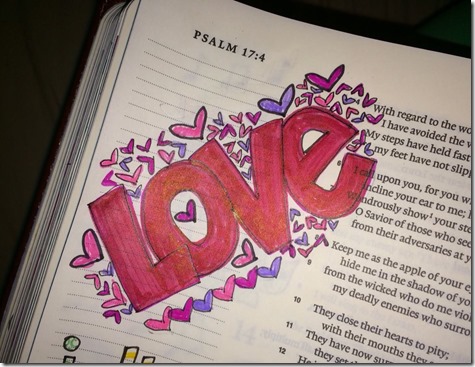 PSALM 17:4
LOVe
With regard to the w
I have avoided the w
My steps have held fast
my feet have not slip
6 I call upon you, for you w
incline your ear to me,
Wondrously show¹ your st
O Savior of those who see
from their adversaries at y
Keep me as the apple of your e
hide me in the shadow of yo
9 from the wicked who do me viol
my deadly enemies who surro
10 They close their hearts to pity;
with their mouths they
11 They have now surr
they set th
12 He i